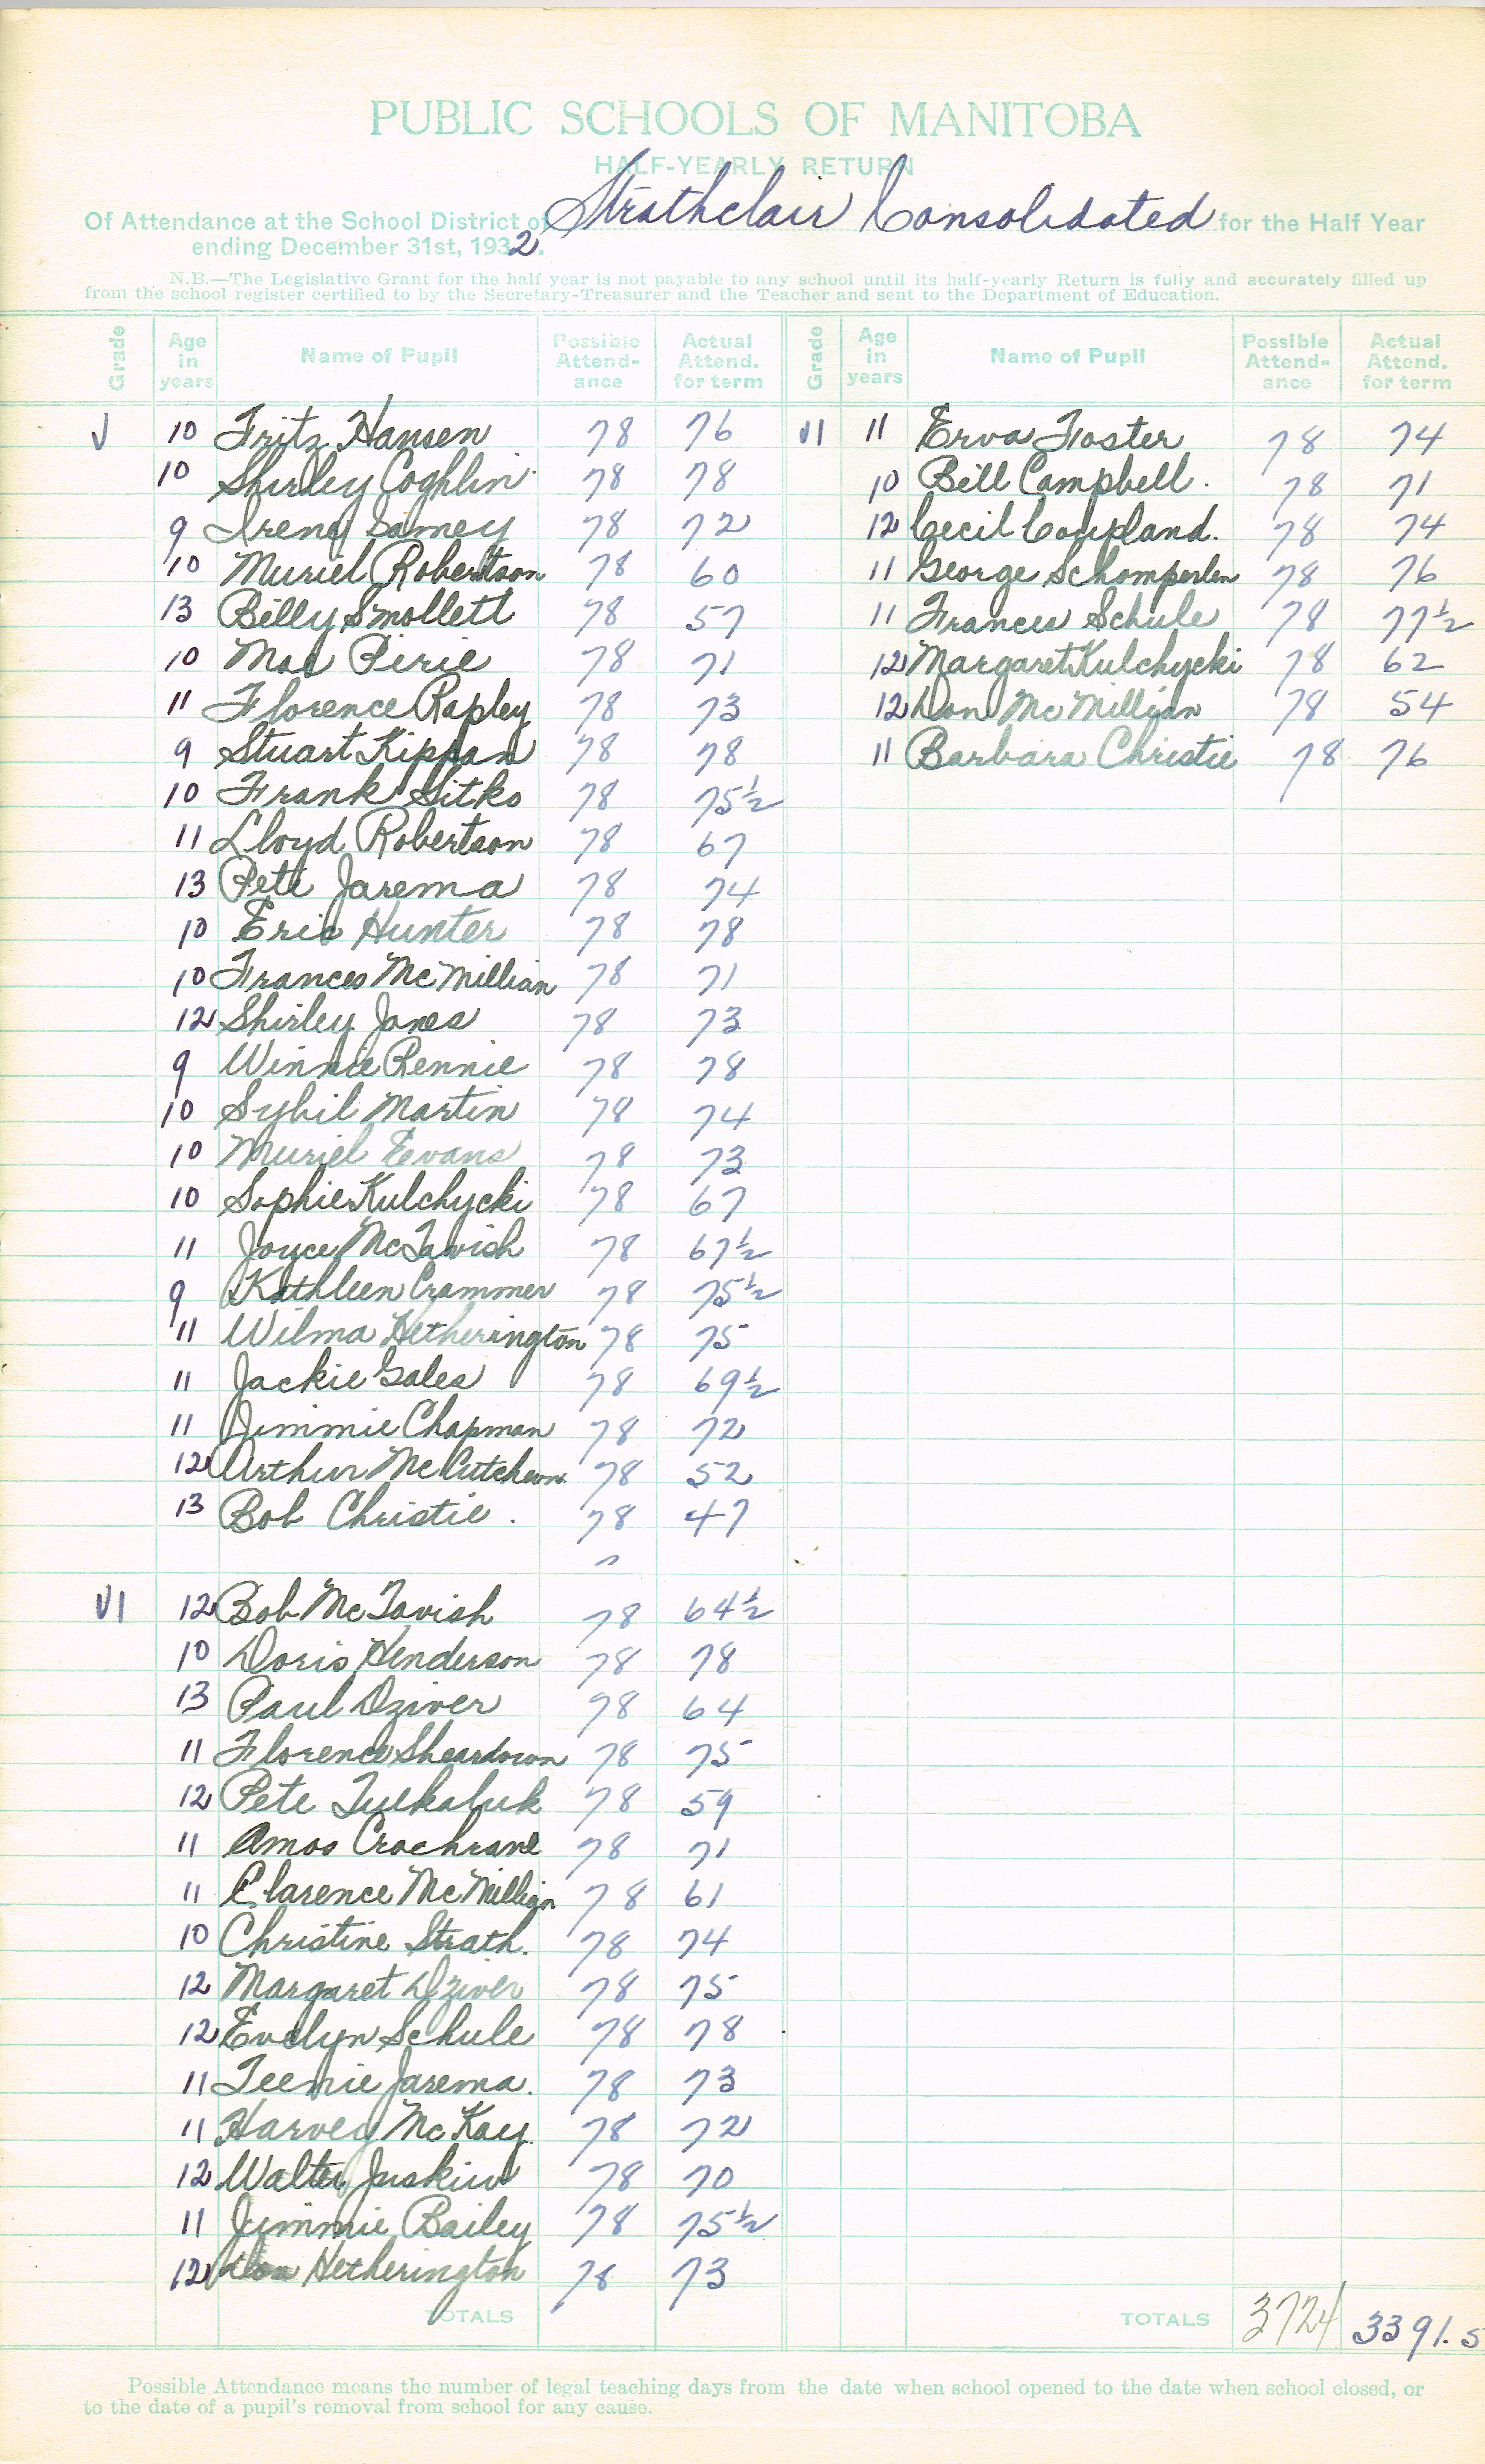 PUBLIC SCHOOLS OF MANITOBA
HALF-YEARLY RETURN
Of Attendance at the School District of Strathclair Consolidated for the Half Year
ending December 31st, 1932.
N.B.—The Legislative Grant for the half year is not payable to any school until its half-yearly Return is fully and accurately filled up
from the school register certified to by the Secretary-Treasurer and the Teacher and sent to the Department of Education.
Grade Age in years Name of Pupil Possible Attend-ance Actual Attend. for term
V 10 Fritz Hansen 78 76
10 Shirley Coghlin 78 78
9 Irene 78 72
10 Muriel Robertson 78 60
13 Billy Smollett 78 57
10 Mae Pirie 78 71
11 Florence Rapley 78 73
9 Stuart Kippan 78 78
10 Frank Sitko 78 75½
11 Lloyd Robertson 78 67
13 Pete Jarema 78 74
10 Eric Hunter 78 78
10 Frances McMillian 78 71
12 Shirley Jones 78 73
9 Winnie Rennie 78 78
10 Sybil Martin 78 74
10 Muriel Evans 78 73
10 Sophie Kulchycki 78 67
11 Joyce McTavish 78 67½
9 Kathleen Crammer 78 75½
11 Wilma Hetherington 78 75
11 Jackie Gales 78 69½
11 Jimmie Chapman 78 72
12 Arthur McCutcheon 78 52
13 Bob Christie. 78 47
VI 12 Bob McTavish 78 64½
10 Doris Henderson 78 78
13 Paul Dziver 78 64
11 Florence Sheardown 78 75
12 Pete Tuckaluk 78 59
11 Amos Crochrane 78 71
11 Clarence McMillian 78 61
10 Christine Strath. 78 74
12 Margaret Dziver 78 75
12 Evelyn Schule 78 78
11 Teenie Jarema. 78 73
11 Harvey McKay. 78 72
12 Walter Juskiw 78 70
11 Jimmie Bailey 78 75½
12 Hetherington 78 73
TOTALS
Grade Age in years Name of Pupil Possible Attend-ance Actual Attend. for term
VI 11 Erva Foster 78 74
10 Bill Campbell. 78 71
12 Cecil Coupland. 78 74
11 George Schomperlen 78 76
11 Frances Schule 78 77½
12 Margaret Kulchycki 78 62
12 Don McMillian 78 54
11 Barbara Christie 78 76
TOTALS 3724 3391.5
Possible Attendance means the number of legal teaching days from the date when school opened to the date when school closed, or
to the date of a pupil's removal from school for any cause.